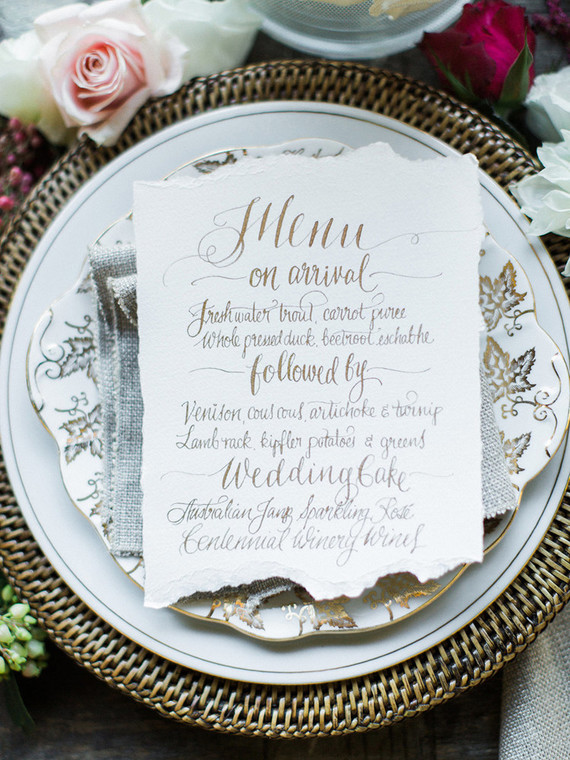 Menu
on arrival
Freshwater trout, carrot puree
Whole pressed duck, beetroot
followed by
Venison, cous cous, artichoke & turnip
Lamb rack, kipfler potatoes & greens
Wedding Cake
Australian Jansz Sparkling Rosé
Centennial Winery Wines